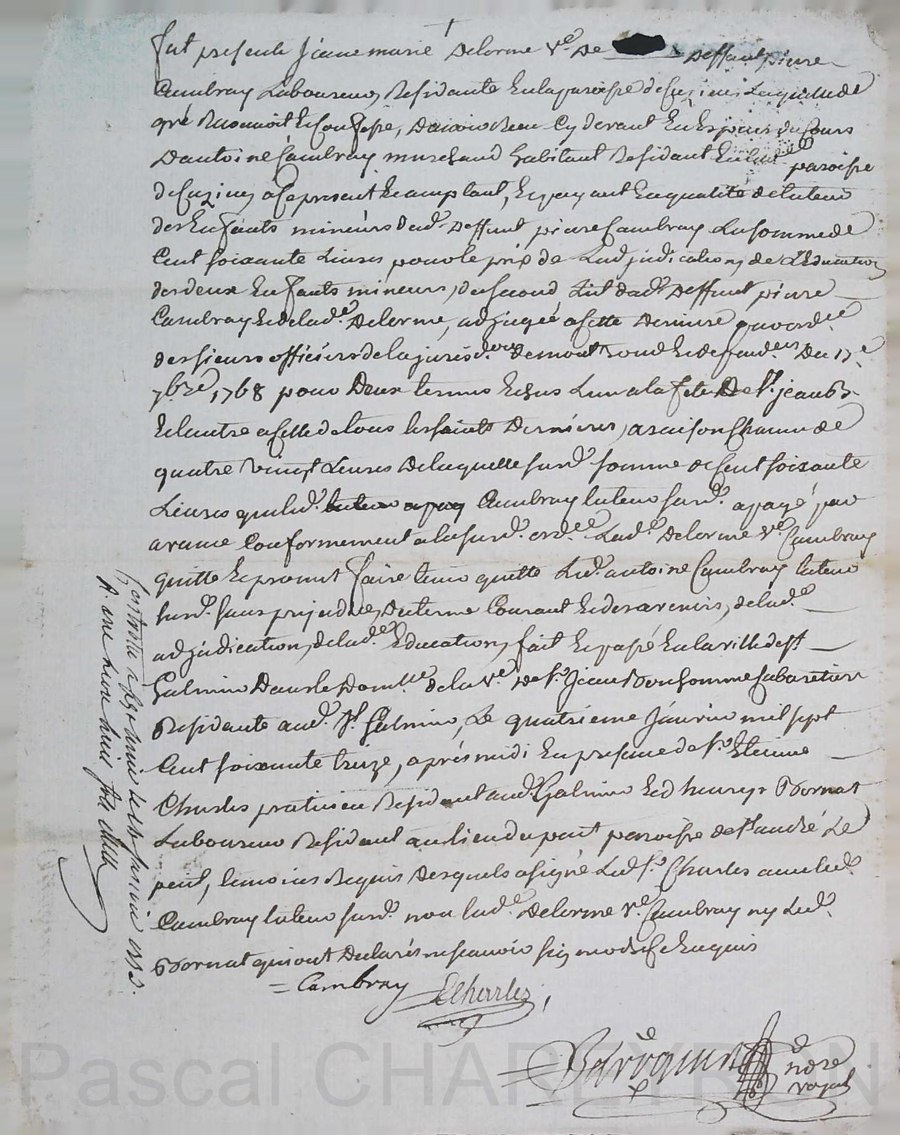 fut presente Jeane marie Delorme Ve. De Deffunt pierre
Cambray Laboureur, Residante En la paroisse de Cuzieu Laquelle de
gré Reconnoit Et Confesse, Davoir Receu Cy devant En Especes du Cours
D'antoine Cambray marchand habitant Residant paroisse
de Cuzieu a Ce present Et acceptant, En payant En qualité de tuteur
des Enfants mineurs dud. Deffunt pierre Cambray La somme de
Cent soixante Livres pour le prix de Ladjudication de L'Education
des deux Enfants mineurs, du second Lit dud. Deffunt pierre
Cambray Et de lad. Delorme, adjugée a Cette Derniere par ordce.
des sieurs officiers de la jurisd. de montrond Du 17e
7bre, 1768 pour Deux termes Echus Lun a la fete De St. jean B.
Et lautre a Celle de tous les saints Dernieres, a raison Chacun de
quatre vingt Livres De laquelle susd. somme de Cent soixante
Livres que led. Cambray tuteur susd. a payé par
avance Conformement a la susd. ordce. Lad. Delorme Ve. Cambray
quitte Et promet faire tenir quitte Led. antoine Cambray tuteur
susd. sans prejudice, du terme Courant Et des avenirs, de lad.
adjudication, de lad. Education, fait Et passé En la ville de St.
Galmier Dans le Domlle. de la Ve. De Sr. Jean Bonhomme Cabaretier
Residante aud. St. Galmier, Le quatrieme Janvier mil sept
Cent soixante treize, après midi En presence de Sr. Etienne
Charles praticien Residant aud. Galmier Et d'henry Bornat
Laboureur Residant au lieu du pont paroisse de St andré Le
puit, temoins Requis Desquels a signé Led. Sr. Charles avec led.
Cambray tuteur susd. non lad. Delorme Ve. Cambray ny Led.
Bornat qui ont Declarés ne scavoir signer de Ce Enquis
= Cambray ECharles
nore
royal
Controllé à St Galmier le janvier 1773.
R une livre huit sols
Pascal CHAREYRON